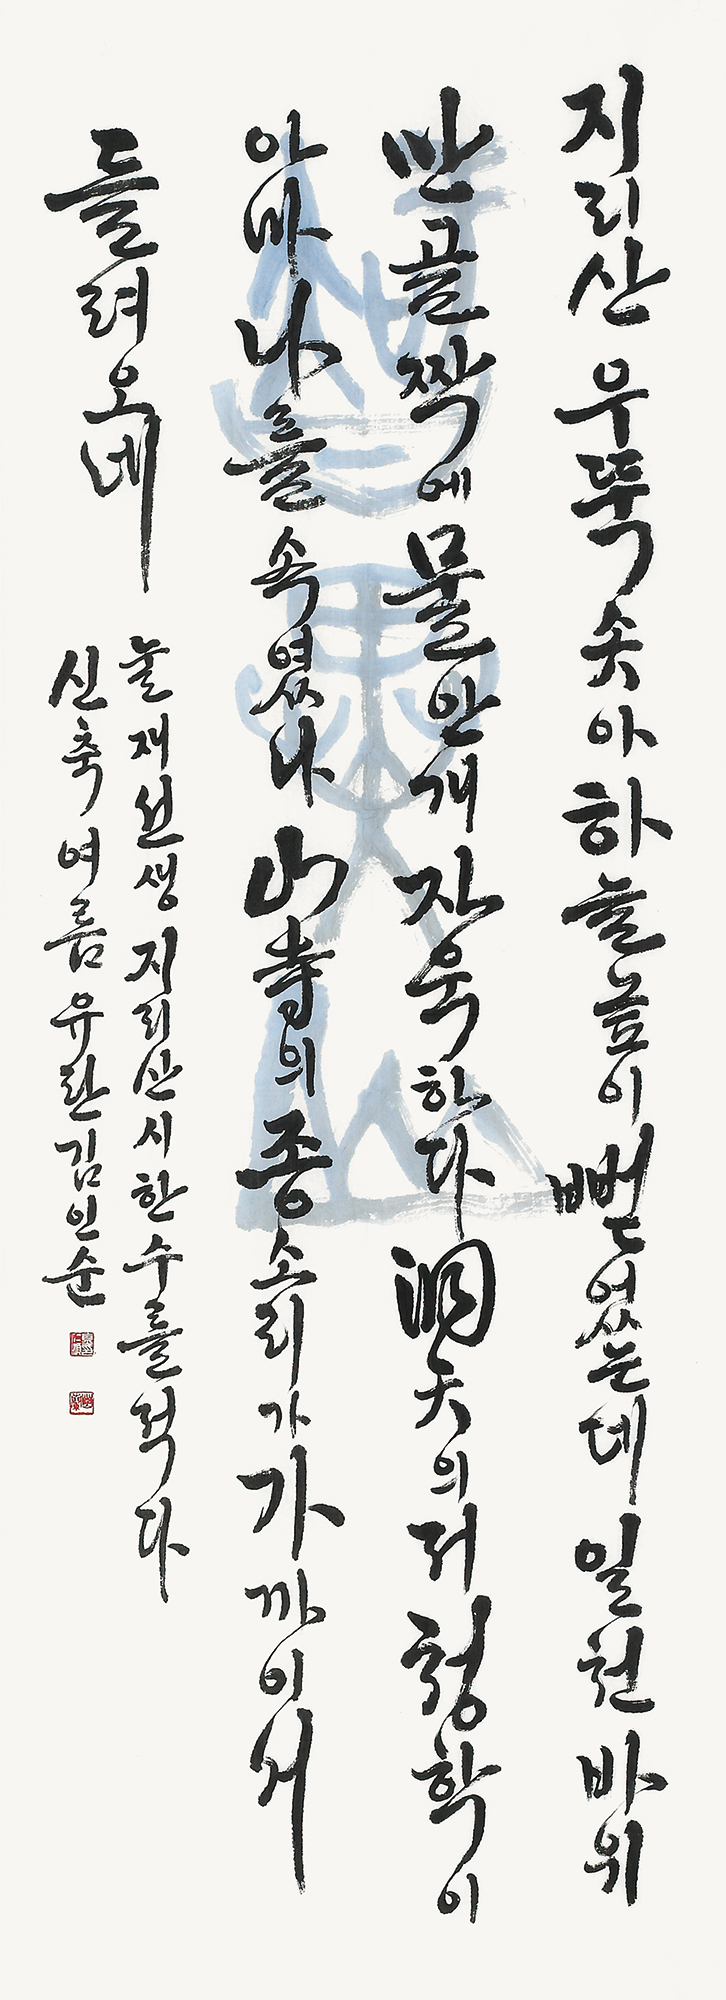 지리산 우뚝 솟아 하늘 높이 뻗었는데 일천 바위
만 골짝에 물안개 자욱하다 洞天의 저 청학이
아마 나를 속였나 山寺의 종소리가 가까이서
들려오네
눌재선생 지리산 시 한 수를 적다
신축 여름 유란 김인순